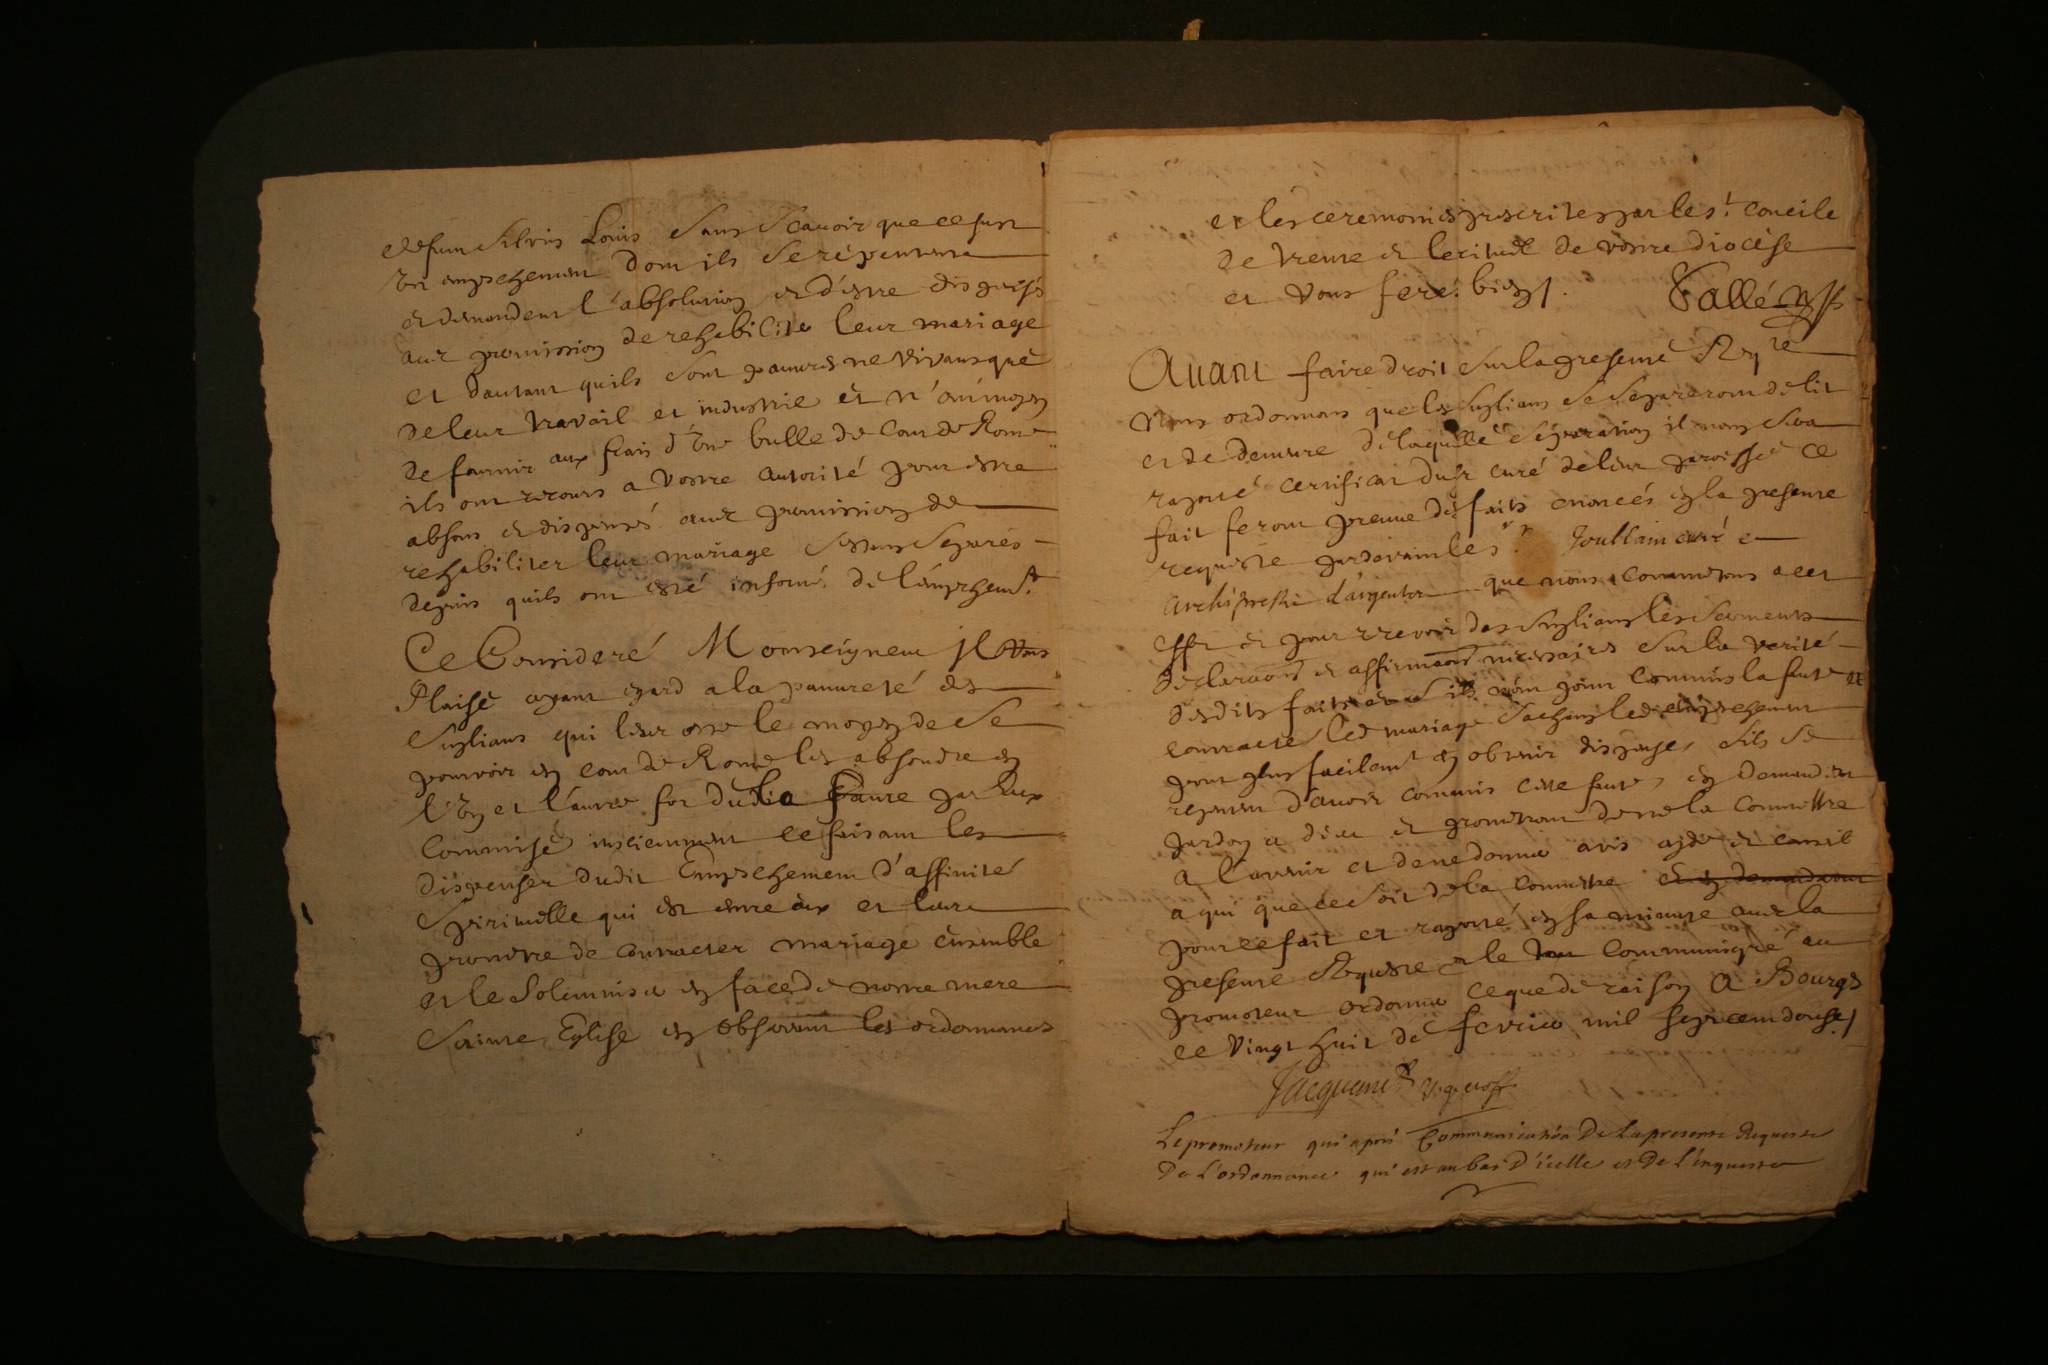 defun Silvin Louis Sans Scavoir que ce fust
Un empechement dont ils Se repentent
et demandent l'absolution et d'estre dispensés
avec permission de rehabiliter leur mariage
et d'autant quils sont pauvres ne vivans que
de leur travail et industrie et n'ont moyen
de fournir aux frais d'Une bulle de Cour de Rome
ils ont recours a Vostre autorité pour estre
absous et dispensés avec permission de
rehabiliter leur mariage s'estans separés
depuis quils ont esté informés de l'empechem.t
Ce Consideré Monseigneur Il Vous
Plaise ayant egard a la pauvreté des
Suplians qui leur oste le moyen de Se
pourvoir en cour de Rome les absoudre en
l'Un et l'autre for du la faute par Eux
Commise insciemment ce faisant les
dispenser dudit Empechement d'affinité
Spirituelle qui est entre eux et leur
permettre de contracter mariage ensemble
et le Solemniser en face de nostre mere
Sainte Eglise en observant les ordonnances
et les ceremonies prescrites par le s.t concile
de trente et le rituel de vostre diocèse
et Vous ferés bien.
Avant faire droit Sur la presente Reqte
Nous ordonnons que les Suplians Se Separeront de lit
et de demeure de laquelle Separation il nous Sera
raporté certificat du sr curé de leur paroisse Ce
fait feront preuve des faits enoncés en la presente
requeste pardevant le sr Joullain curé
archiprestre d'argenton que nous Commetons a cet
effet et pour recevoir des Suplians les Serments
declaraons et affirmaons necessaires Sur la verité
desdits faits et s'ils n'ont point Commis la faute et
contracté led mariage Sachans led empechement
pour plus facilemt en obtenir dispense, Sils Se
repentent d'avoir commis cette faute, en demandent
pardon a dieu et promettent de ne la Commettre
a l'avenir et de ne donner avis ayde et conseil
a qui que ce Soit de la Commettre et en demandent
pour ce fait et raporté en sa minute avec la
presente Requeste et le tout Communiqué au
promoteur ordonner ce que de raison A Bourges
ce Vingt huit de fevrier mil sept cent douse
Le promoteur qui apres Communication De la presente Requeste
De L'ordonnance qui est au bas d'icelle et De l'enqueste